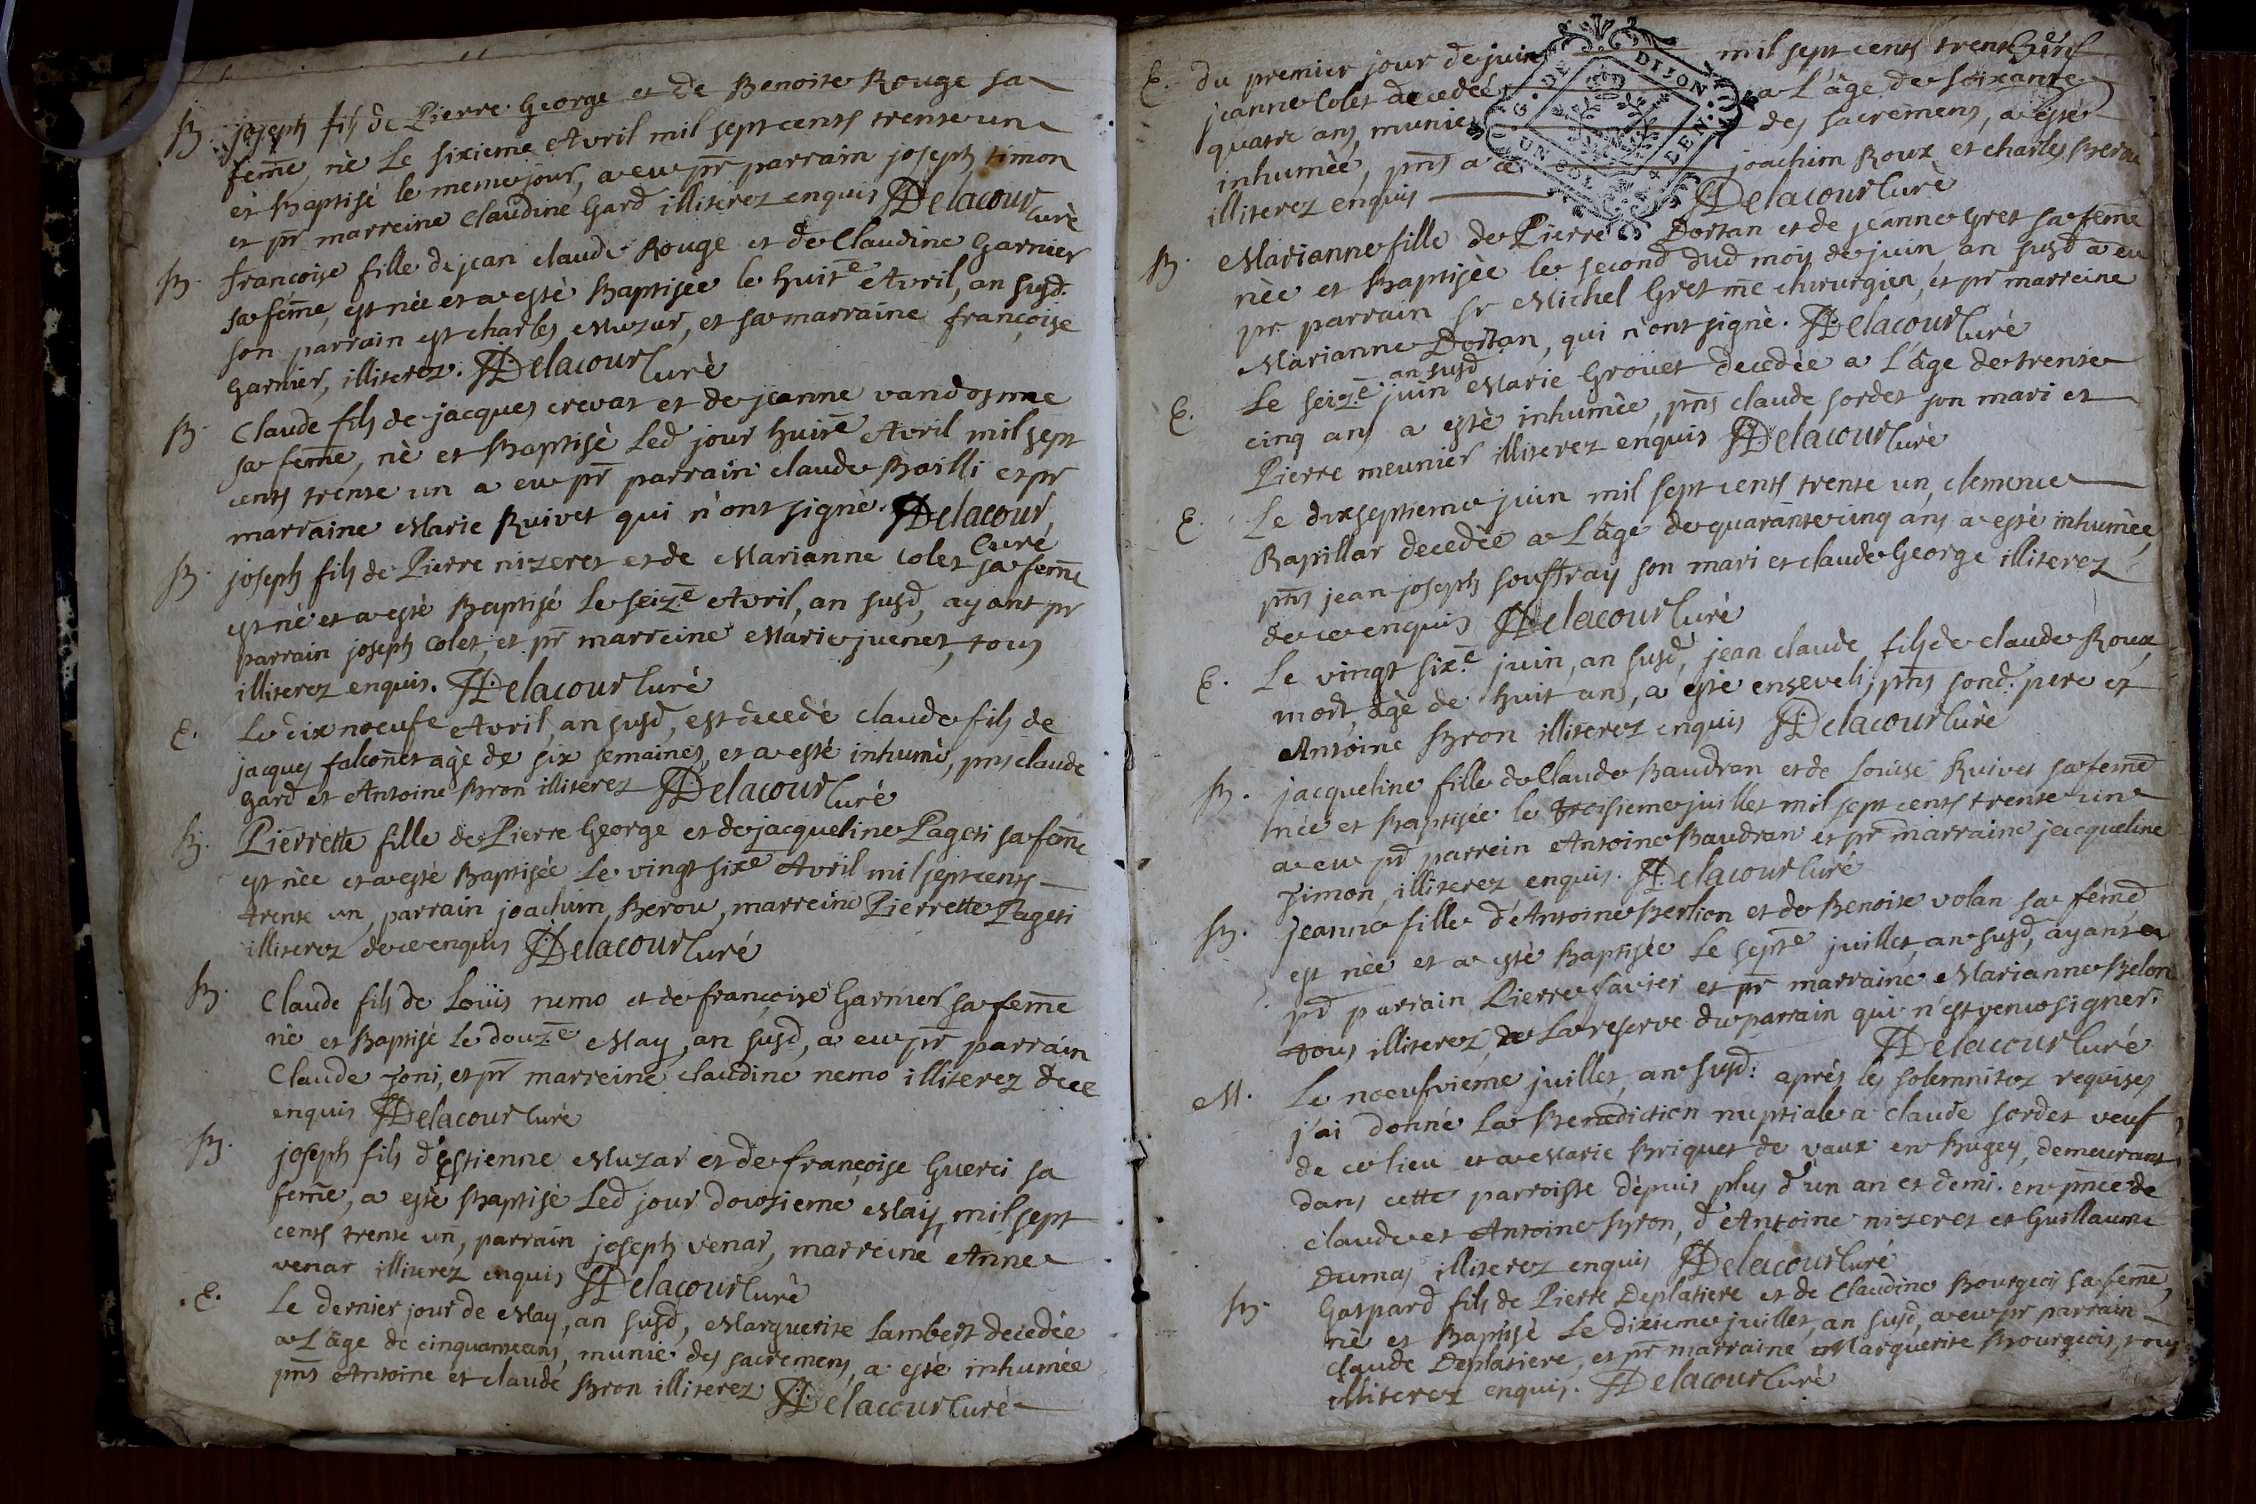 B. joseph fils de Pierre George et de Benoite Rouge sa
feme, né le sixieme Avril mil sept cents trente un
et Baptisé le meme jour, a eu pr parrain joseph timon
et pr marreine Claudine Gard illiterez enquis Delacour Curé
B. francoise fille de jean claude Rouge et de Claudine Garnier
sa feme, est née et a esté Baptisée le huite Avril, an susd.
son parrain est charles Muzar, et sa marraine françoise
Garnier, illiterez. Delacour Curé
B. Claude fils de jacques crevat et de jeanne vandosme
sa feme, né et Baptisé led jour huite Avril mil sept
cents trente un a eu pr parrain claude Bailli et pr
marraine Marie Ruivet qui n'ont signé. Delacour, Curé
B. joseph fils de Pierre nizeret et de Marianne Colet sa feme
est né et a esté Baptisé le seize Avril, an susd, ayant pr
parrain joseph Colet, et pr marreine Marie juenet, tous
illiterez enquis. Delacour Curé
E. Le dix noeufe Avril, an susd, est decedé claude fils de
jacques falconet agé de six semaines, et a esté inhumé, pnts claude
Gard et Antoine Bron illiterez Delacour Curé
B. Pierrette fille de Pierre George et de jacqueline Pageti sa feme
est née et a esté Baptisée Le vingt sixe Avril mil sept cents
trente un, parrain joachim Berou, marreine Pierrette Pageti
illiterez de ce enquis Delacour Curé
B. Claude fils de Loüis nemo et de françoise Garnier sa feme
né et Baptisé Le douze May, an susd, a eu pr parrain
Claude Joni, et pr marreine claudine nemo illiterez de ce
enquis Delacour Curé
B. joseph fils d'Estienne Muzar et de françoise Guerci sa
feme, a esté Baptisé Led jour douzieme May, mil sept
cents trente un, parrain joseph venar, marreine Anne
venar illiterez enquis Delacour Curé
E. Le dernier jour de May, an susd, Marguerite Lambert decedée
a L'age de cinquante ans, munie des sacremens, a esté inhumée
pnts Antoine et claude Bron illiterez Delacour Curé
G. DE DIJON
E. du premier jour de juin mil sept cents trente
jeanne Colet decedée a L'âge de soixante
quatre ans, munie des sacremens, a esté
inhumée, pnts a ce joachim Roux et charles Berou
illiterez enquis Delacour Curé
B. Marianne fille de Pierre Dortan et de jeanne Gret sa feme
née et Baptisée le second dud mois de juin, an susd a eu
pr parrain Sr Michel Gret me chirurgien, et pr marreine
Marianne Dortan, qui n'ont signé. Delacour Curé
an susd
E. Le seize juin Marie Groüet decedée a L'âge de trente
cinq ans a esté inhumée, pnts claude sordet son mari et
Pierre meunier illiterez enquis Delacour Curé
E. Le dixseptieme juin mil sept cents trente un, clemence
Rapillar decedée a L'âge de quarante cinq ans a esté inhumée,
pnts jean joseph souffray son mari et claude George illiterez
de ce enquis Delacour Curé
E. Le vingt sixe juin, an susd, jean claude fils de claude Roux
mort, âgé de huit ans, a esté enseveli, pnts sond. pere et
Antoine Bron illiterez enquis Delacour Curé
B. jacqueline fille de Claude Baudran et de Loüise Ruivet sa feme
née et Baptisée le troisieme juillet mil sept cents trente un
a eu pr parrein Antoine Baudran et pr marraine jacqueline
Timon, illiterez enquis. Delacour Curé
B. jeanne fille d'Antoine Berlion et de Benoite volan sa feme
est née et a esté Baptisée Le septe juillet, an susd, ayant eu
pr parrain Pierre savier et pr marraine Marianne Belon
tous illiterez, a La reserve du parrain qui n'est venu signer.
Delacour Curé
M. Le noeufvieme juillet an susd: aprés les solemnitez requises
j'ai donné La Benediction nuptiale a claude sordet veuf
de ce lieu et a Marie Briquet de vaux en Bugey, demeurant
dans cette parroisse depuis plus d'un an et demi. en pnce de
claude et Antoine Bron, d'Antoine nizeret et Guillaume
Dumas illiterez enquis Delacour Curé
B. Gaspard fils de Pierre Deplatiere et de Claudine Bourgeois sa feme,
né et Baptisé Le dixieme juillet, an susd, a eu pr parrain
Claude Deplatiere, et pr marraine Marguerite Bourgeois, tous
illiterez enquis. Delacour Curé